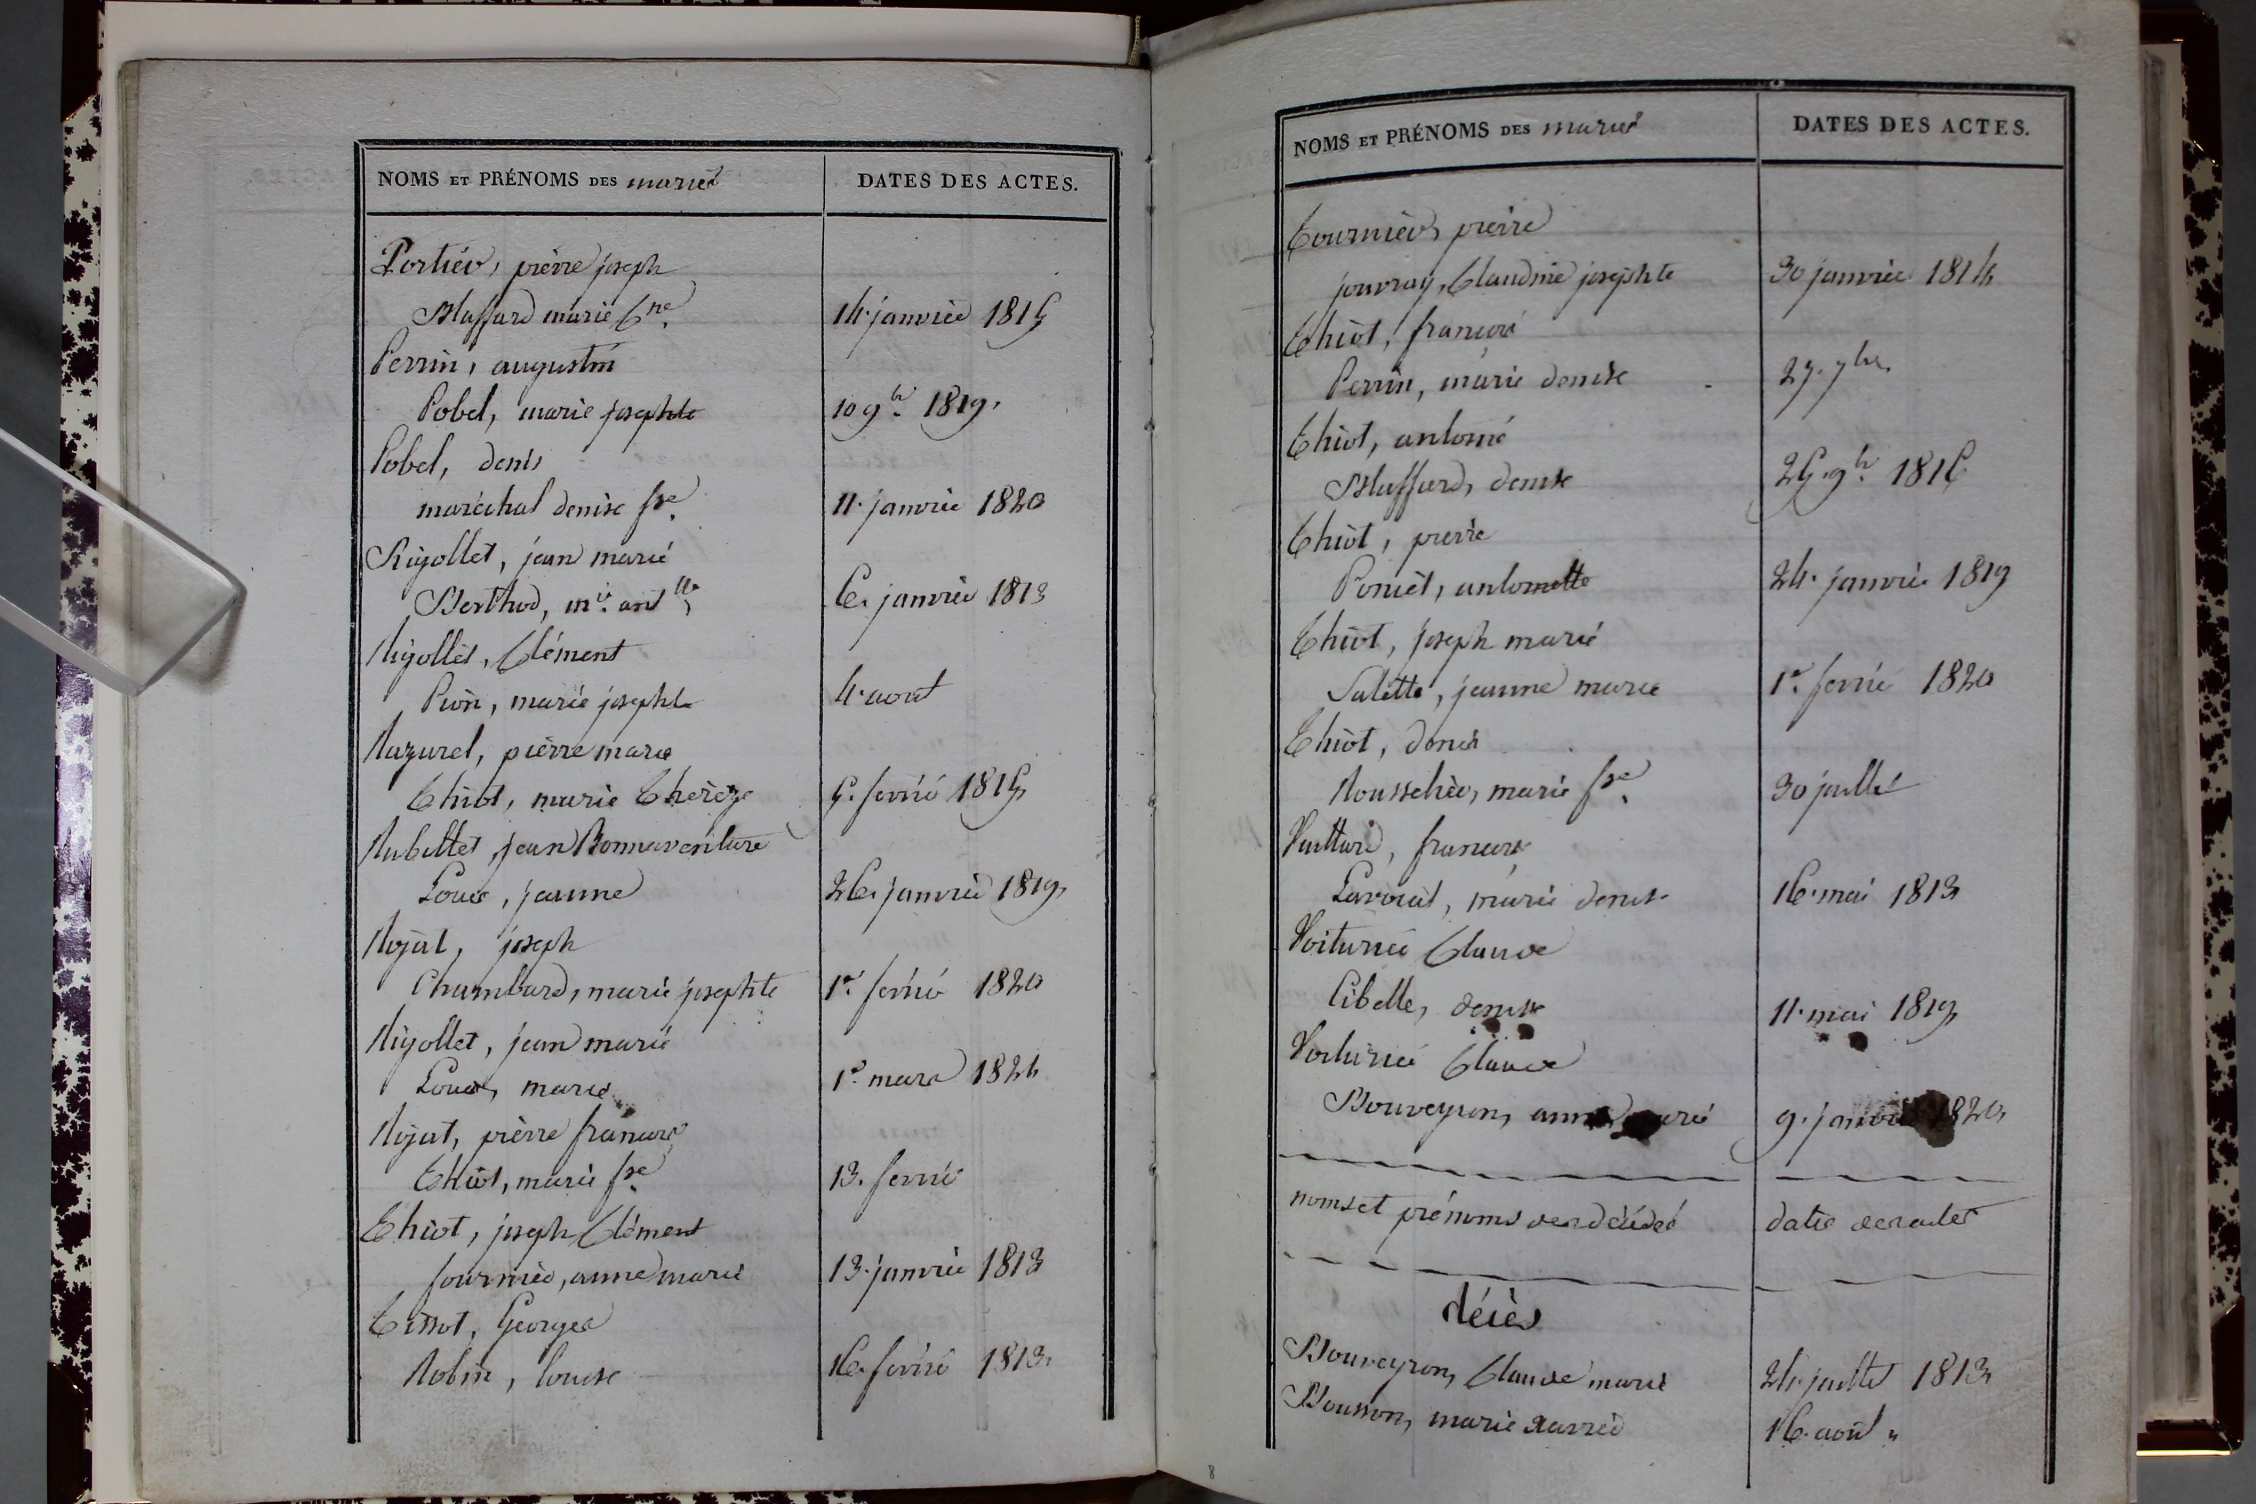 NOMS ET PRÉNOMS DES mariés
DATES DES ACTES.
Portier, pierre joseph
Maffard marie Cne. 14. janvier 1815
Perrin, augustin
Pobel, marie josephte 10 9br. 1819.
Pobel, denis
maréchal denise fse. 11. janvier 1820
Rigollet, jean marie
Berthod, mie. antlle, 6. janvier 1813
Rigollet, Clément
Pion, marie josephte 4. aout
Razurel, pierre marie
Thiot, marie Thérèze 5. fevrié 1815
Rubellet, jean Bonnaventure
Louis, jeanne 26. janvier 1819,
Rojat, joseph
Chambard, marie josephte 1er. fevrié 1820
Rigollet, jean marie
Louis, marie 1er. mars 1824
Rojat, pierre françois
Thiot, marie fse. 13. fevrié
Thiot, joseph Clément
fournier, anne marie 13. janvier 1813
Tissot, Georges
Robin, louise 16. fevrié 1813.
NOMS ET PRÉNOMS DES mariés
DATES DES ACTES.
Tournier, pierre
jouvray, Claudine josephte 30 janvier 1814
Thiot, françois
Perrin, marie denise 27. 7bre.
Thiot, antoine
Maffard, denise 25. 9br. 1816
Thiot, pierre
Poncet, antoinette 24. janvier 1819
Thiot, joseph marie
Salette, jeanne marie 1er. fevrié 1820
Thiot, denis
Rousselier, marie fse. 30 juillet
Vuittard, françois
Lavorat, marie denise 16. mai 1813
Voiturier Claude
Cibelle, denise 11. mai 1819
Voiturier Claude
Bouveyron, anne marie 9. janvier 1820,
noms et prénoms des décédés
datte des actes
décès
Bouveyron, Claude marie 24. juillet 1813
Bousson, marie xavier 16. aout "
8